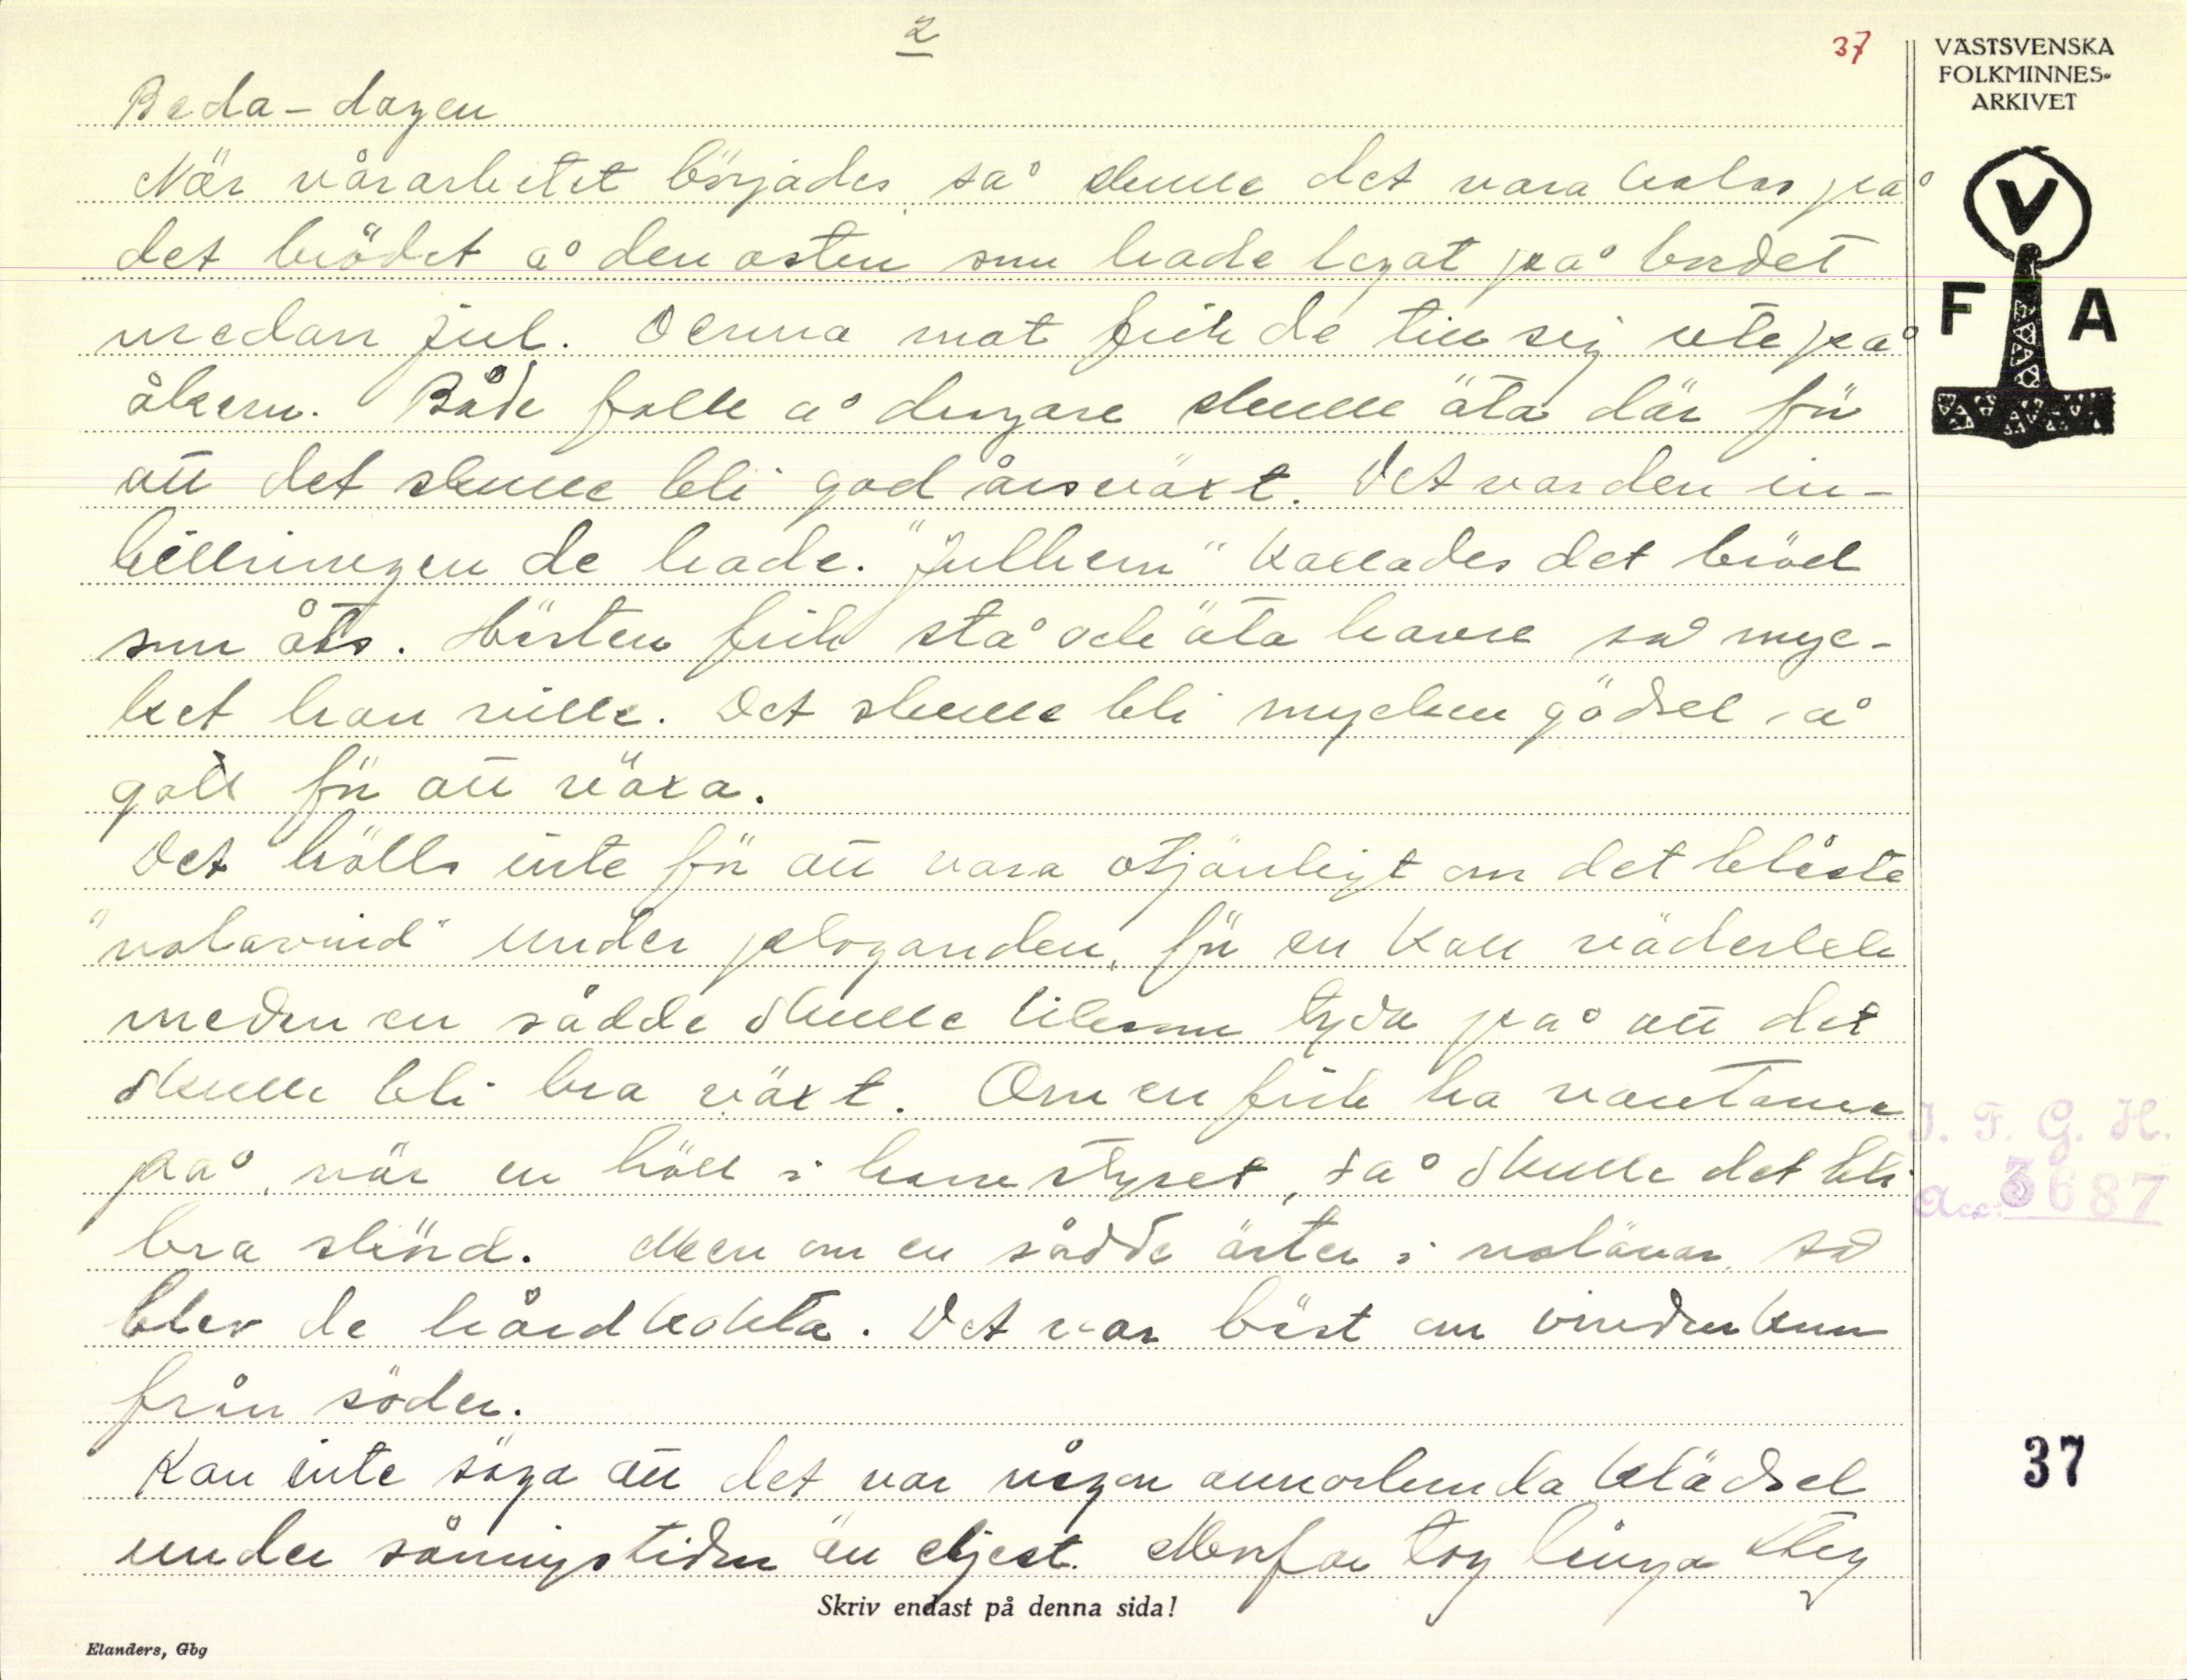 2
37
VÄSTSVENSKA
FOLKMINNES-
ARKIVET
V
F A
Beda-dagen
När vårarbetet börjades, så skulle det vara kalas på
det brödet å den osten som hade legat på bordet
medan jul. Denna mat fick de till sig ute på
åkern. Både folk å dragare skulle äta där för
att det skulle bli god årsväxt. Det var den in-
billningen de hade. "Julhem" kallades det bröd
som åts. Hästen fick stå och äta havre så myc-
ket han ville. Det skulle bli mycken gödsel å
gott för att växa.
Det hölls inte för att vara otjänligt om det blåste
"nolavind" under plogandet, för en kall väderlek
medan en sådde skulle liksom tyda på att det
skulle bli bra växt. Om en fick ha vantarna
på, när en höll i harvstyret, så skulle det bli
bra skörd. Men om en sådde ärter i nolavär, så
blev de hårdkokta. Det var bäst om vinden kom
från söder.
Kan inte säga att det var någon annorlunda klädsel
under såningstiden än eljest. Morfar tog långa steg
Skriv endast på denna sida!
Elanders, Gbg
I. F. G. H.
Acc. 3687
37